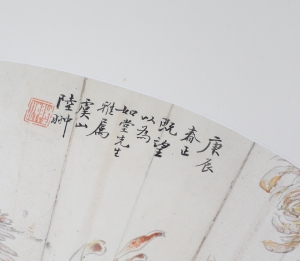 庚辰
春正
既望
以為
如堂先生
雅属
虞山
陸翀